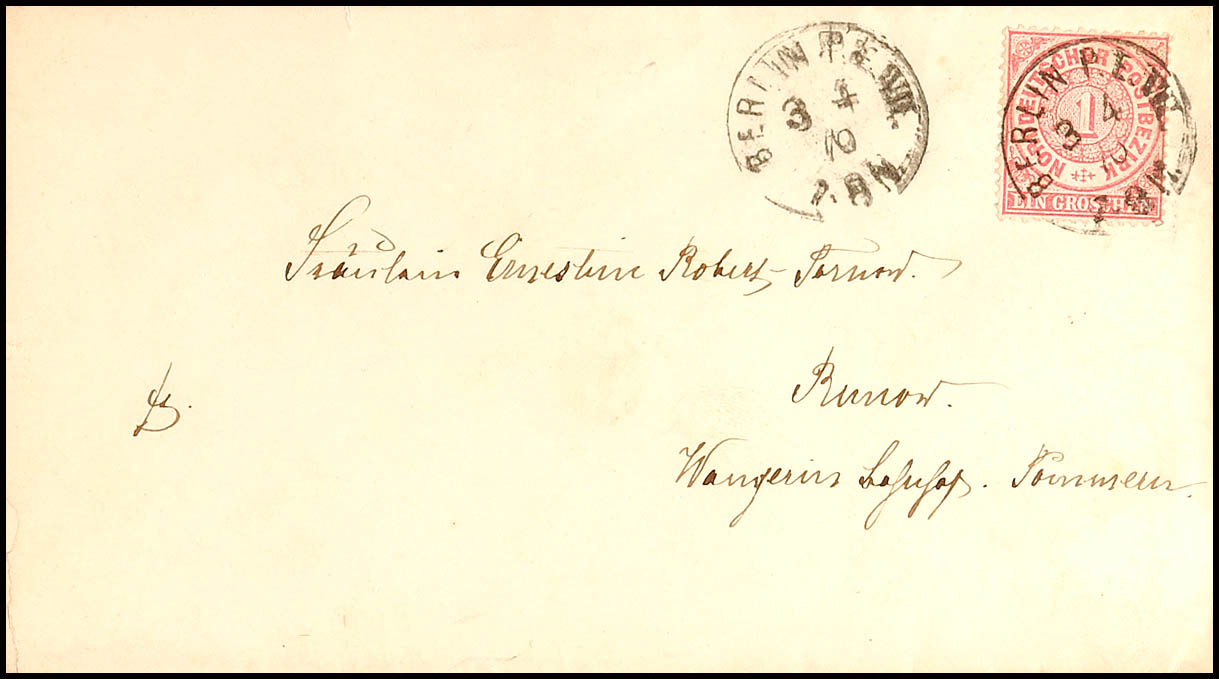 BERLIN P.E.
3 4
70
7-8 N
NORDDEUTSCHER POSTBEZIRK
1
EIN GROSCHEN
BERLIN P.E.
3 4
70
7-8 N
Fräulein Ernestine Robert-Tornow.
Runow.
Wangerin Bahnhof. Pommern.